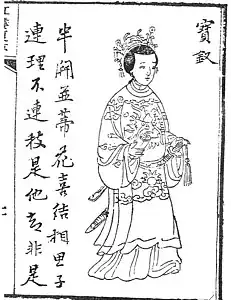 寶釵
半開並蒂花喜結相思子
連理不連枝是他却非是